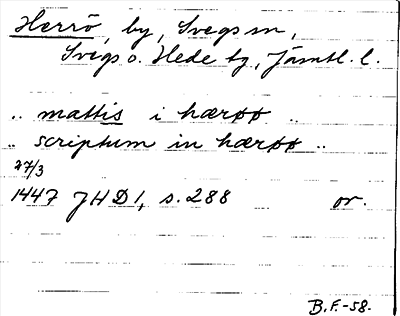 Herrö, by, Svegs sn,
Svegs o. Hede tg, Jämtl. l.
.. mattis i hærøø ..
.. scriptum in hærøø ..
27/3
1447 JHD1, s. 288 or.
B.F.-58.